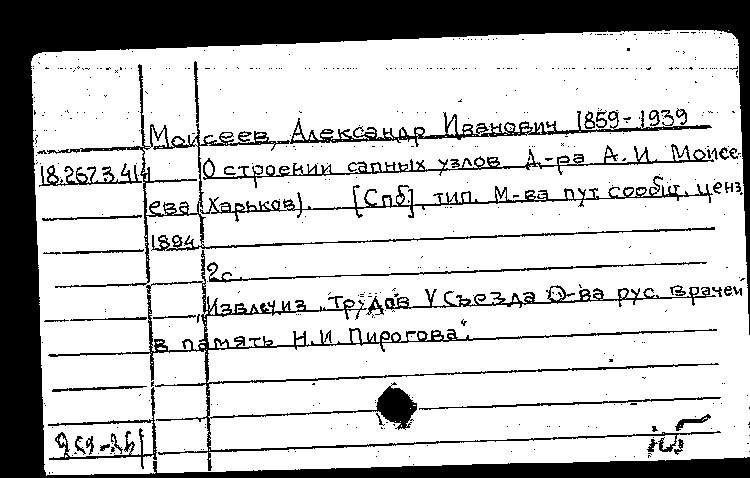 Моисеев, Александр Иванович, 1859-1939
18.267.3.414 О строении сапных узлов Д-ра А.И. Моисе
ева (Харьков). [Спб], тип. М-ва пут. сообщ. ценз
1894
2с.
"Извлеч. из "Трудов V Съезда О-ва рус. врачей
в память Н.И. Пирогова".